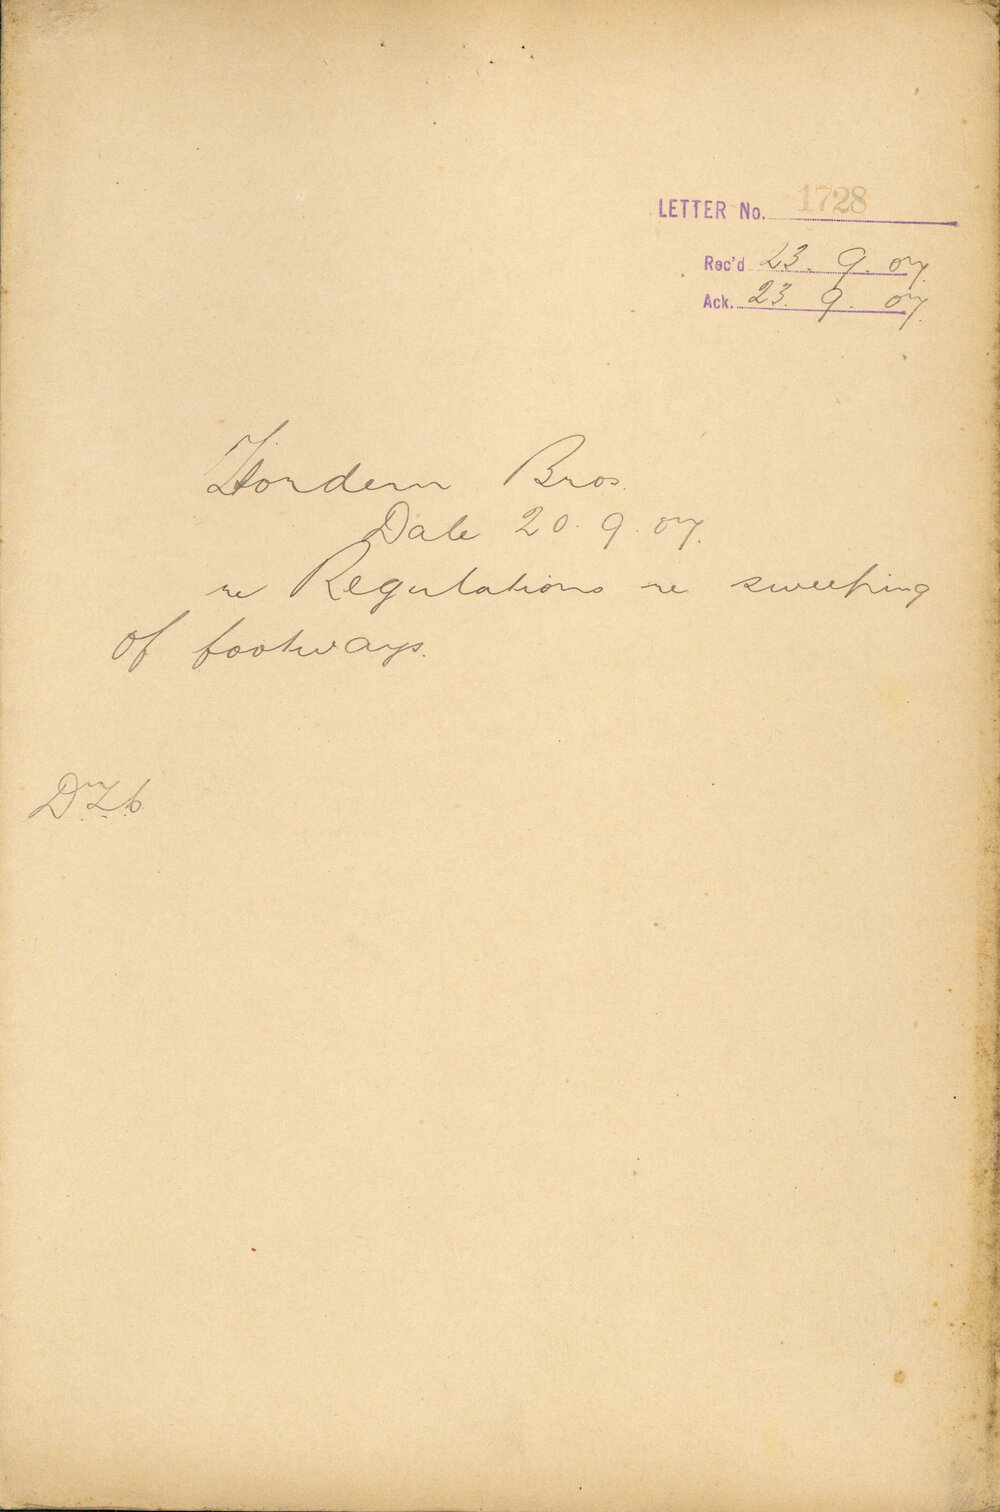 LETTER No. 1728
Rec'd 23. 9. 07.
Ack. 23. 9. 07.
Hordern Bros.
Date 20. 9. 07.
re Regulations re sweeping
of footways.